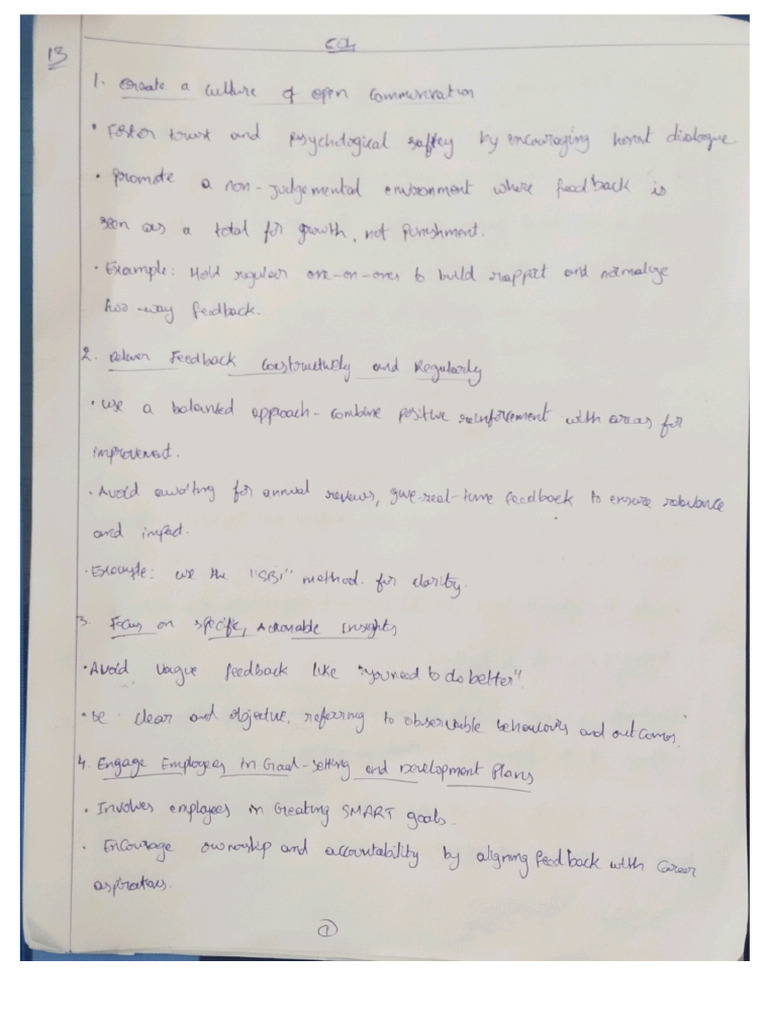 13
CO4
1. Create a Culture of open communication
• Foster trust and psychological saftey by encouraging honest dialogue
• promote a non-judgemental environment where feedback is
seen as a total for growth, not punishment.
• Example: Hold regular one-on-ones to build rapport and normalize
two-way feedback.
2. Deliver Feedback Constructively and Regularly
• use a balanced approach - combine positive reinforcement with areas for
improvement.
• Avoid awaiting for annual reviews, give real-time feedback to ensure relevance
and impact.
• Example: use the "SBI" method for clarity.
3. Focus on specific, Actionable Insights
• Avoid vague feedback like "you need to do better".
• be clear and objective, referring to observable behaviours and outcomes.
4. Engage Employees in Goal-setting and Development Plans
• Involves employees in Creating SMART goals.
• Encourage ownership and accountability by aligning feedback with career
aspirations.
1